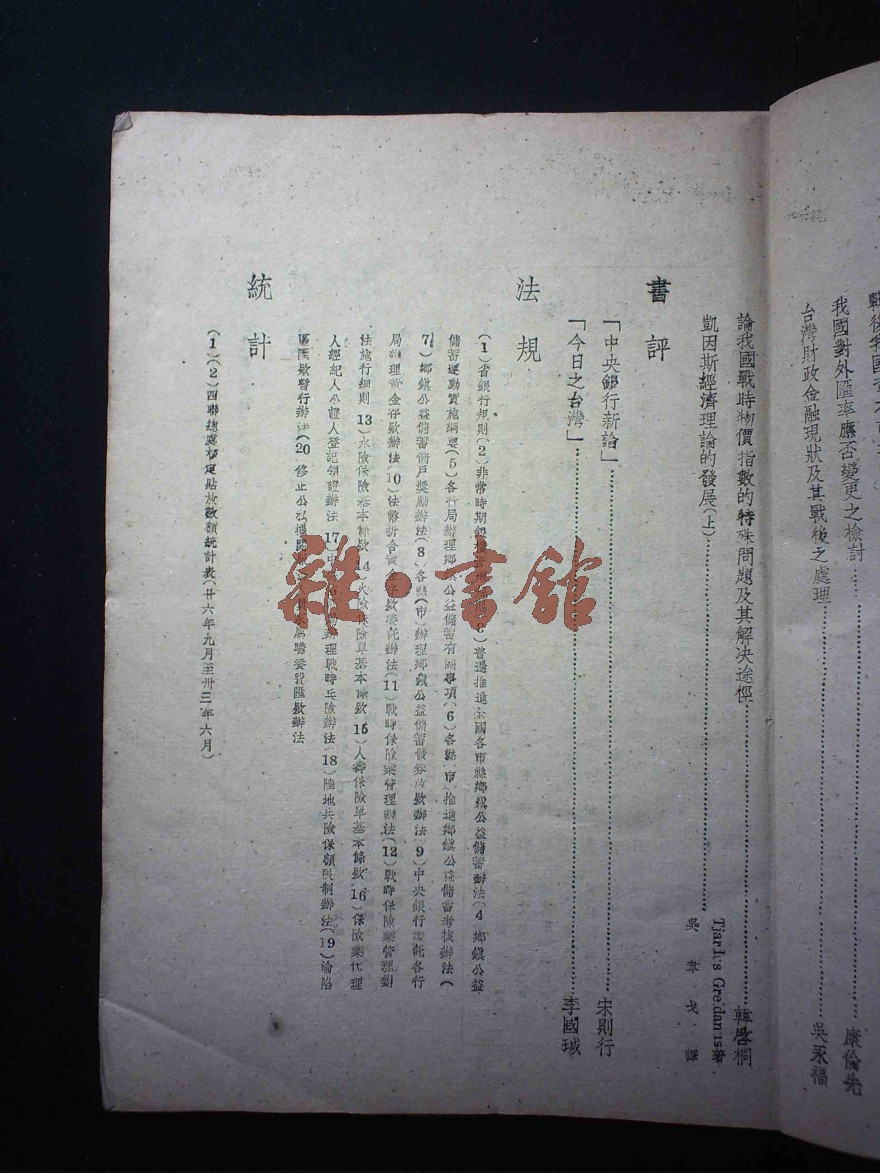 我國對外匯率應否變更之檢討 康倫先
台灣財政金融現狀及其戰後之處理 吳永福
論我國戰時物價指數的特殊問題及其解決途徑 韓啓桐
凱因斯經濟理論的發展(上) Tjardus Greidanus著 吳幸戈譯
書評
「中央銀行新論」 宋則行
「今日之台灣」 李國珹
法規
(1)省銀行規則(2)非常時期 普遍推進全國各市縣鄉鎮公益儲蓄辦法(4 鄉鎮公益
儲蓄運動實施綱要(5)各行局辦理鄉鎮公益儲蓄有關事項(6)各縣(市)推進鄉鎮公益儲蓄考核辦法(
7)鄉鎮公益儲蓄儲戶獎勵辦法(8)各縣(市)辦理鄉鎮公益儲蓄發券收款辦法(9)中央銀行委託各行
局辦理黃金存款辦法(10)法幣折合黃金存款委託辦法(11)戰時保險業管理辦法(12)戰時保險業管理辦
法施行細則(13)水險保險基本條款(14)火險保險單基本條款(15)人壽保險單基本條款(16)保險業代理
人經紀人公證人登記領證辦法(17)中 辦理戰時兵險辦法(18)陸地兵險保額限制辦法(19)淪陷
區匯款暫行辦法(20 修正公私機關 贍養費匯款辦法
統計
(1)(2)四聯總處核定貼放數額統計表(廿六年九月至卅三年六月)